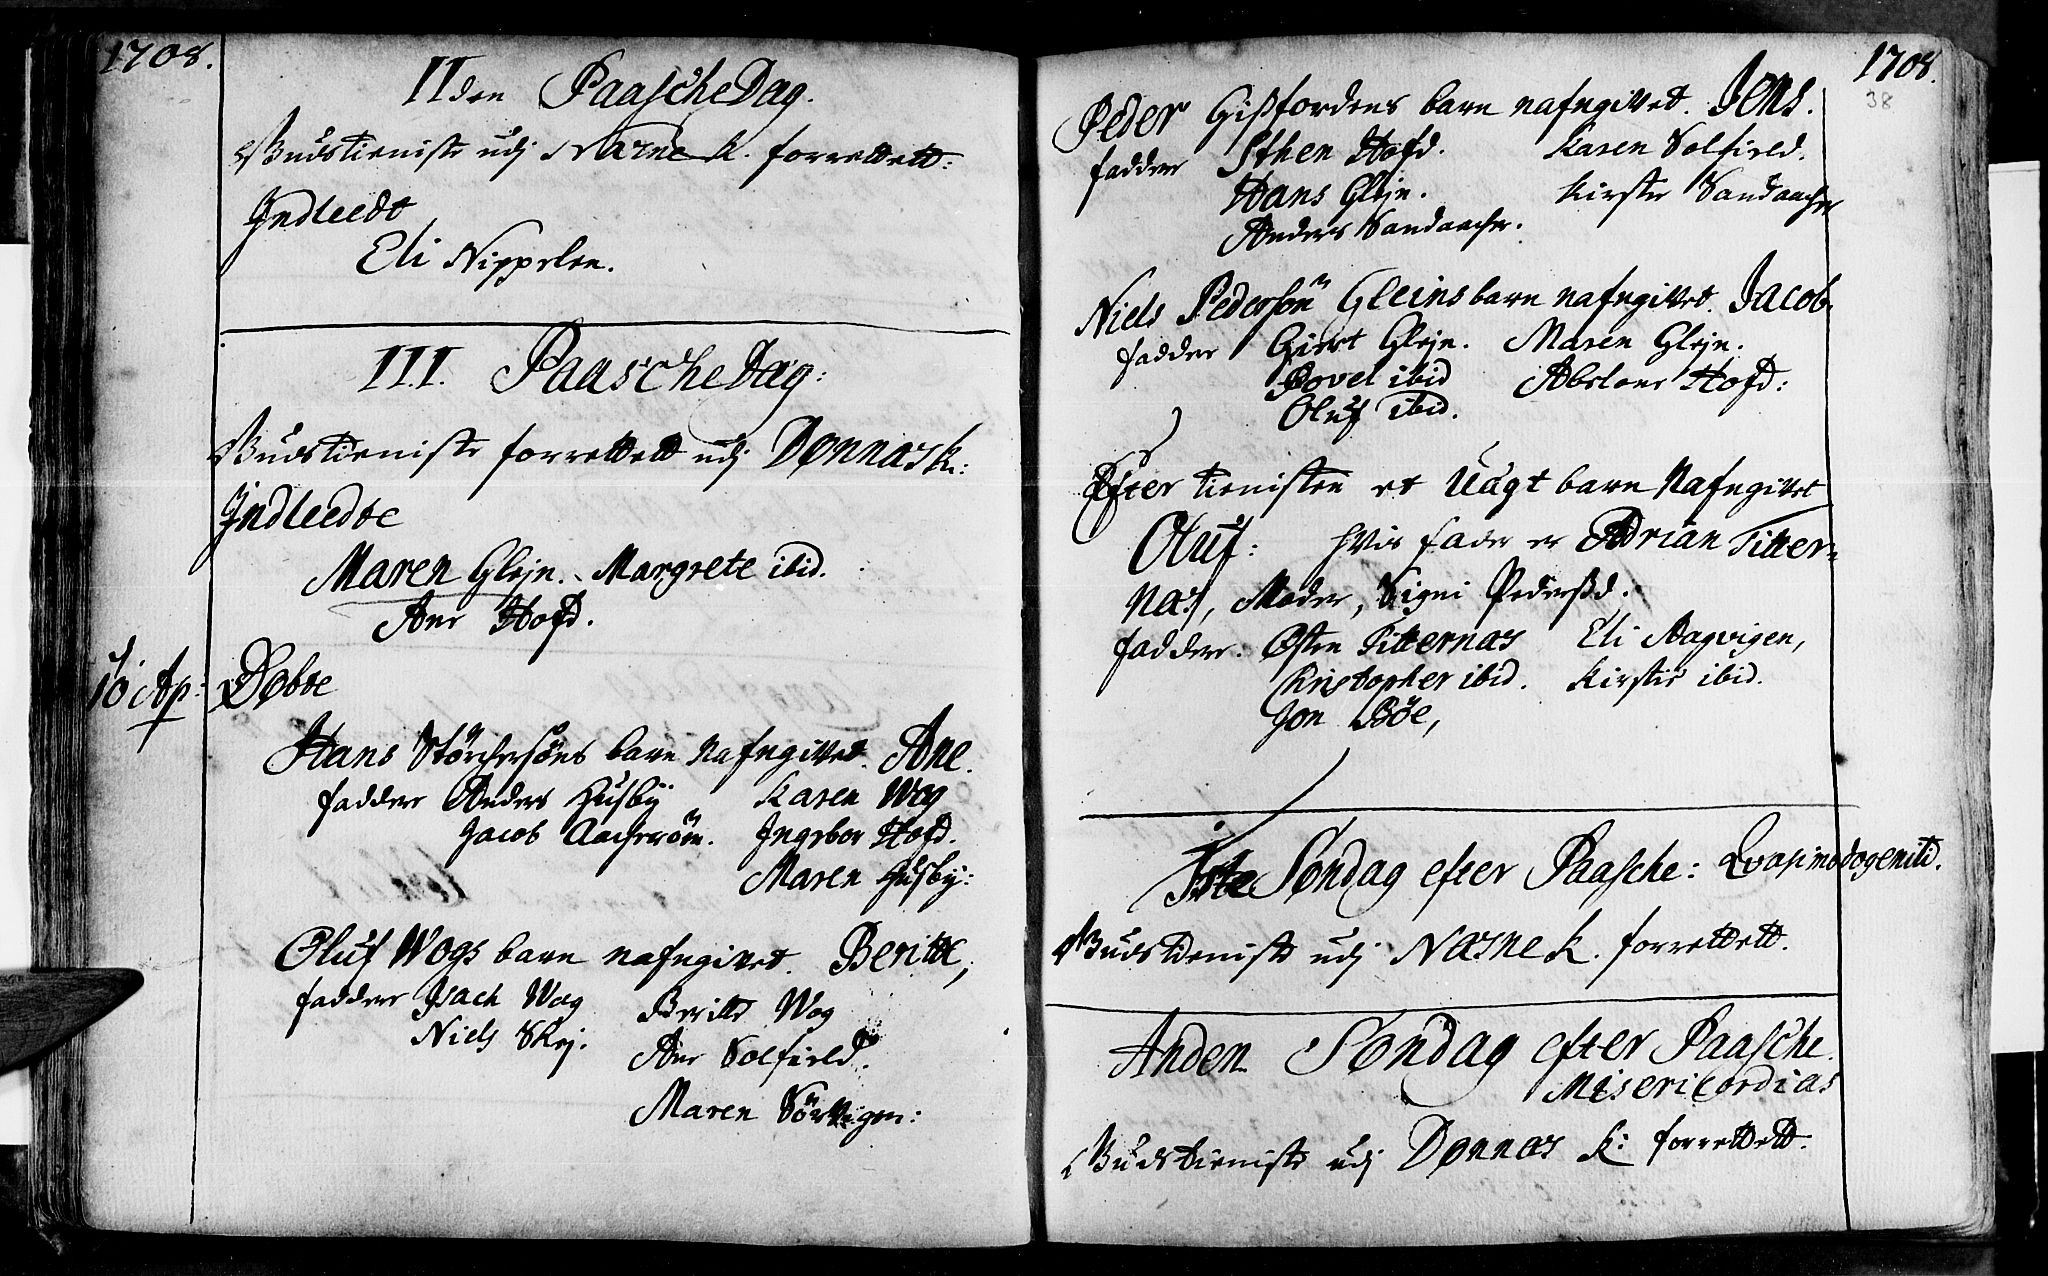 1708.
IIden PaascheDag.
Gudstieniste udj Næsne K. forrettett:
Indleedt
Eli Nippelen.
III. Paasche Dag:
Gudstieniste forrettett udj Dønnæs K:
Indleedte
Maren Glejn. Margrete ibid.
Ane Hofd.
10 Ap: Døbte
Hans Störchersöns barn nafngivet. Ane.
faddere Anders Husbÿ Karen Wog
Jacob Ingebor Hofd.
Maren Husbÿ:
Oluf Wogs barn nafngivet. Beritte,
faddere Isach Wog Beritte Wog
Niels Skej. Ane Solfield.
Maren Sörvigen:
1708.
38
Peder Gißfordens barn nafngivet. Jens.
faddere Sthen Hofd. Karen Solfield.
Hans Glejn. Kirste Sandaacher
Anders Sandaacher.
Niels Pedersön Gleins barn nafngivet. Jacob.
faddere Giert Glejn. Maren Glejn.
Povel ibid Abelone Hofd:
Oluf ibid.
Efter tienisten et Uägt barn Nafngivet
Oluf: hvis fader er Adrian Titter-
næs, Moder, Signi Pedersd.
faddere: Østen Titternæs Eli Aagvigen,
Christopher ibid. Kirstie ibid.
Jon Bøe,
1ste Søndag efter Paasche: Qvasimodogenitj.
Gudstieniste udj Næsne K. forrettett.
Anden Søndag efter Paasche.
Misericordias
Gudstieniste udj Dønnæs K: forrettett.